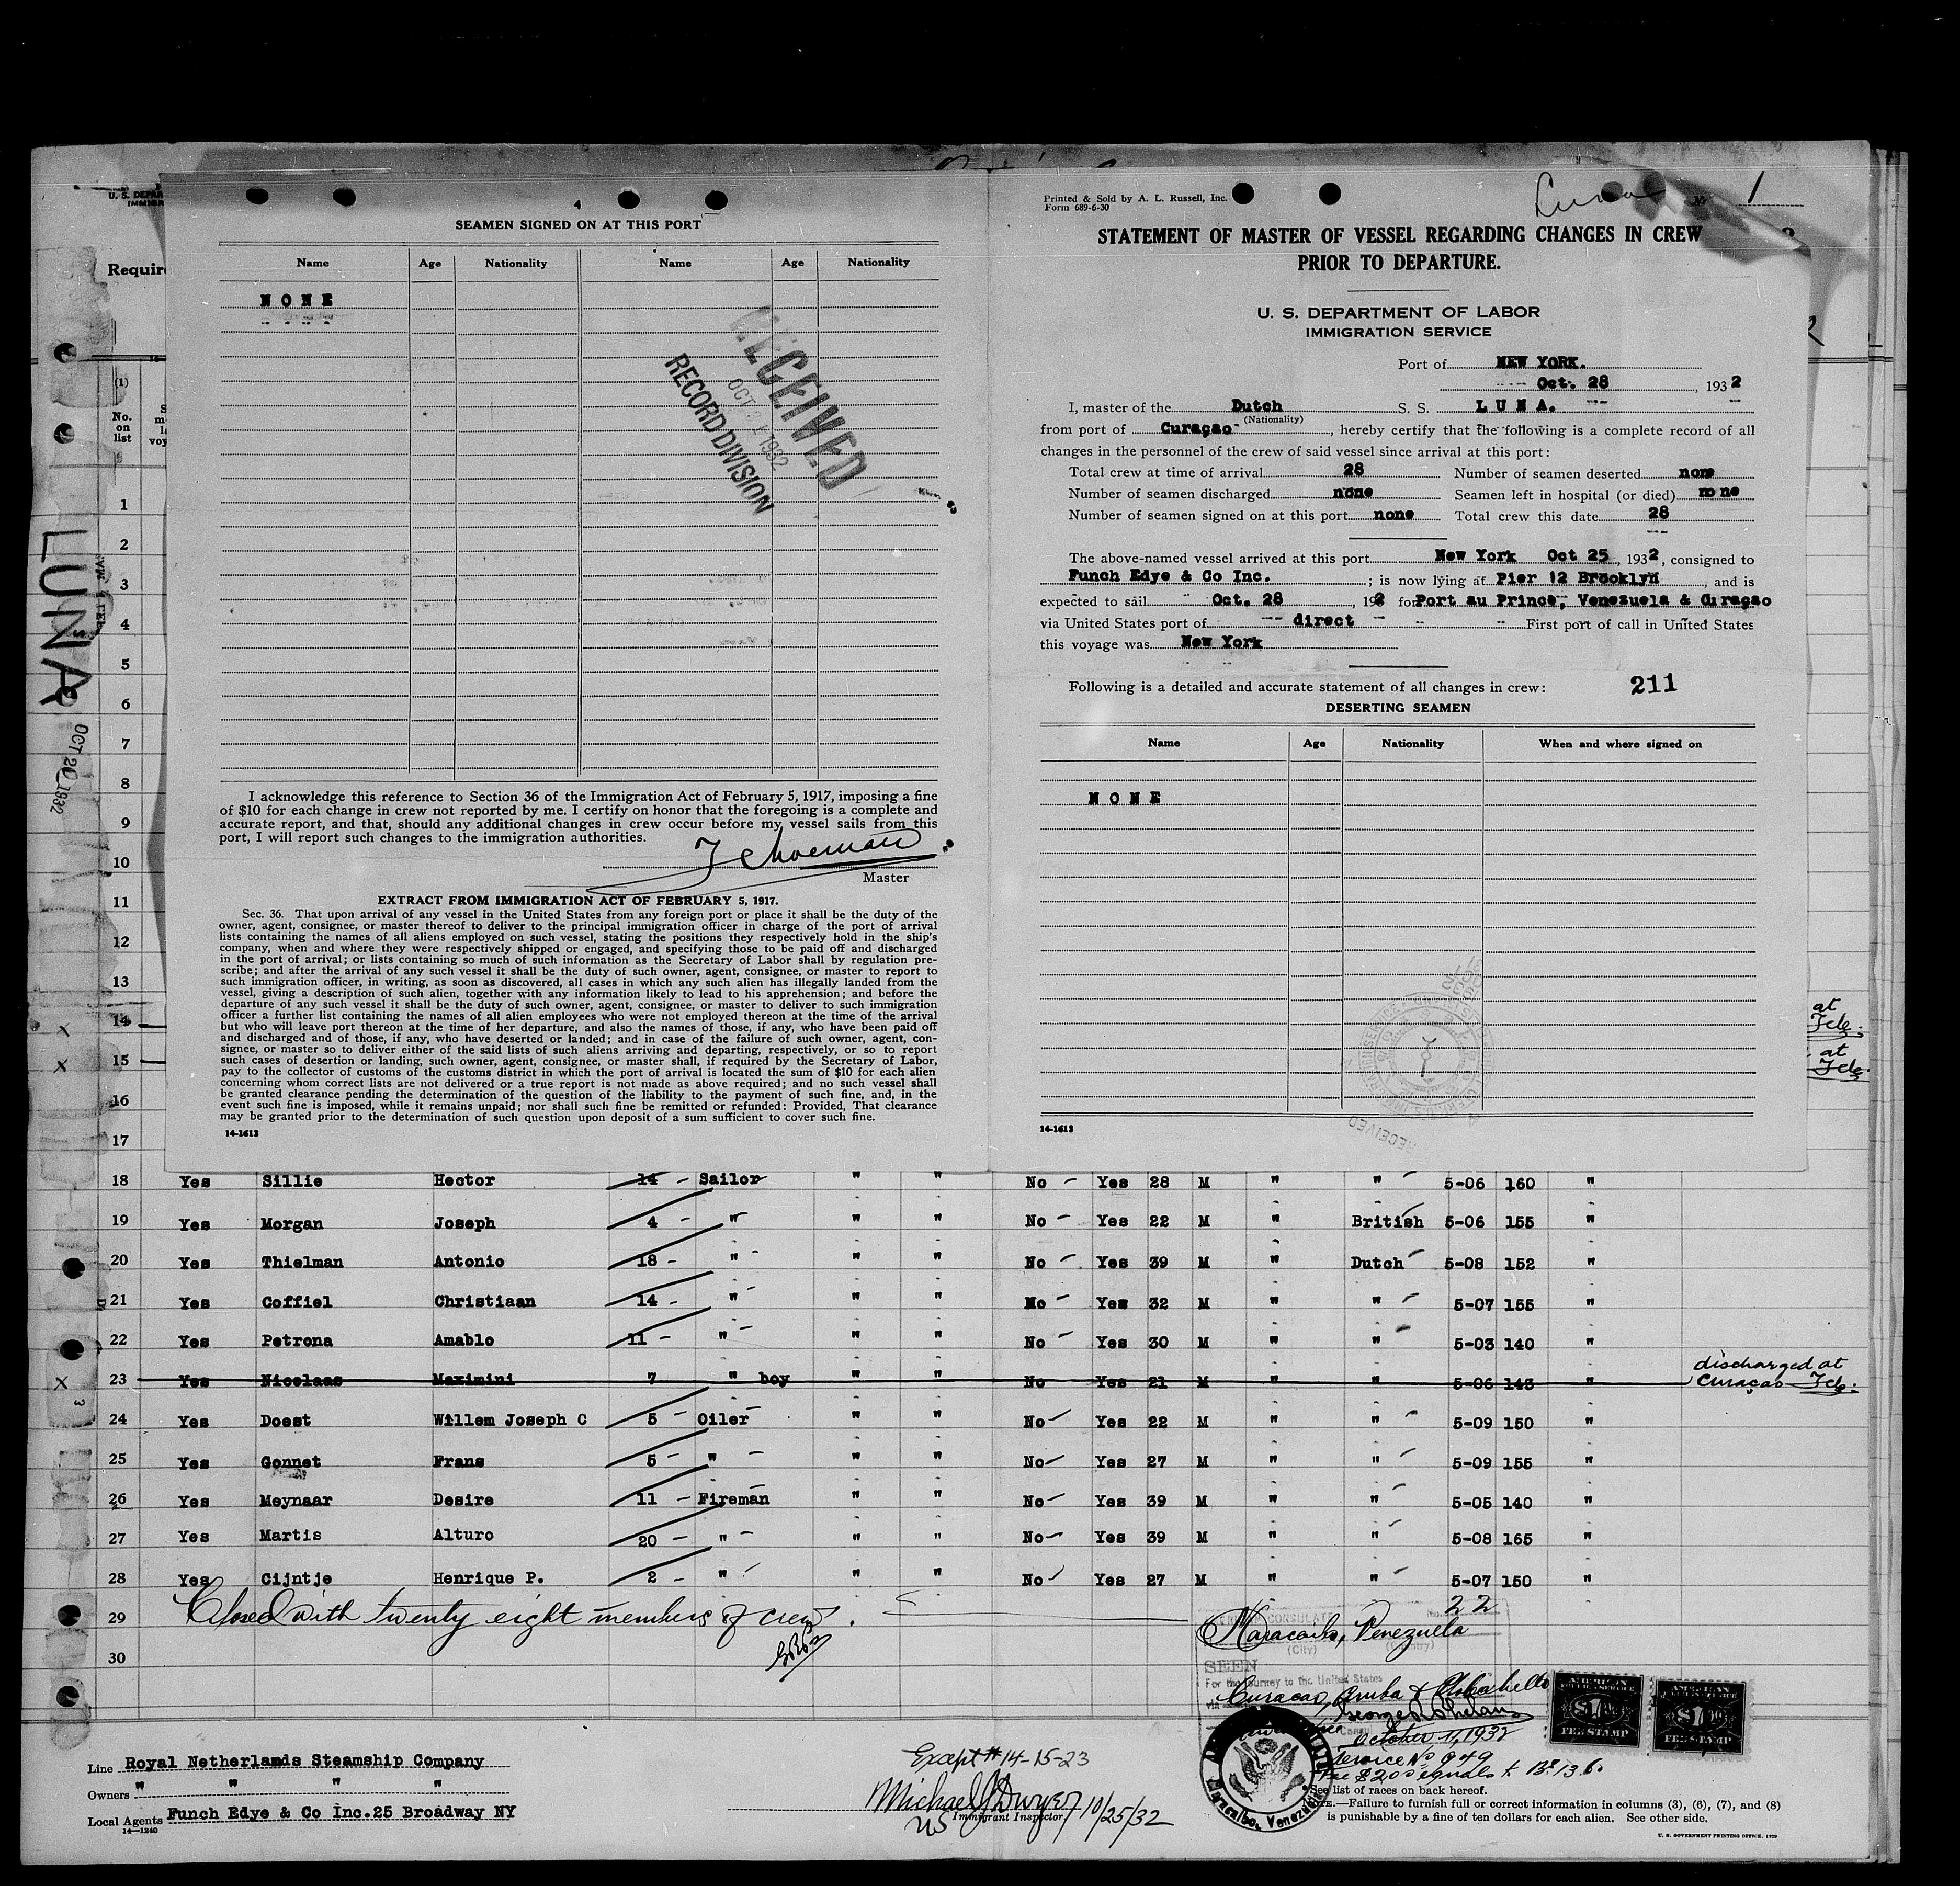 U. S. DEPA
IMMIGRA
Require
(1)
No.
on
list
LUNA
OCT 26 1932
4
SEAMEN SIGNED ON AT THIS PORT
Name Age Nationality Name Age Nationality
NONE
RECEIVED
OCT 2 1932
RECORD DIVISION
I acknowledge this reference to Section 36 of the Immigration Act of February 5, 1917, imposing a fine
of $10 for each change in crew not reported by me. I certify on honor that the foregoing is a complete and
accurate report, and that, should any additional changes in crew occur before my vessel sails from this
port, I will report such changes to the immigration authorities.
Master
EXTRACT FROM IMMIGRATION ACT OF FEBRUARY 5, 1917.
Sec. 36. That upon arrival of any vessel in the United States from any foreign port or place it shall be the duty of the
owner, agent, consignee, or master thereof to deliver to the principal immigration officer in charge of the port of arrival
lists containing the names of all aliens employed on such vessel, stating the positions they respectively hold in the ship's
company, when and where they were respectively shipped or engaged, and specifying those to be paid off and discharged
in the port of arrival; or lists containing so much of such information as the Secretary of Labor shall by regulation pre-
scribe; and after the arrival of any such vessel it shall be the duty of such owner, agent, consignee, or master to report to
such immigration officer, in writing, as soon as discovered, all cases in which any such alien has illegally landed from the
vessel, giving a description of such alien, together with any information likely to lead to his apprehension; and before the
departure of any such vessel it shall be the duty of such owner, agent, consignee, or master to deliver to such immigration
officer a further list containing the names of all alien employees who were not employed thereon at the time of the arrival
but who will leave port thereon at the time of her departure, and also the names of those, if any, who have been paid off
and discharged and of those, if any, who have deserted or landed; and in case of the failure of such owner, agent, con-
signee, or master so to deliver either of the said lists of such aliens arriving and departing, respectively, or so to report
such cases of desertion or landing, such owner, agent, consignee, or master shall, if required by the Secretary of Labor,
pay to the collector of customs of the customs district in which the port of arrival is located the sum of $10 for each alien
concerning whom correct lists are not delivered or a true report is not made as above required; and no such vessel shall
be granted clearance pending the determination of the question of the liability to the payment of such fine, and, in the
event such fine is imposed, while it remains unpaid; nor shall such fine be remitted or refunded: Provided, That clearance
may be granted prior to the determination of such question upon deposit of a sum sufficient to cover such fine.
14-1613
Printed & Sold by A. L. Russell, Inc.
Form 689-6-30
No. 1
STATEMENT OF MASTER OF VESSEL REGARDING CHANGES IN CREW
PRIOR TO DEPARTURE.
U. S. DEPARTMENT OF LABOR
IMMIGRATION SERVICE
Port of NEW YORK.
Oct. 28, 1932
I, master of the Dutch S. S. LUNA.
(Nationality)
from port of Curaçao, hereby certify that the following is a complete record of all
changes in the personnel of the crew of said vessel since arrival at this port:
Total crew at time of arrival 28 Number of seamen deserted none
Number of seamen discharged none Seamen left in hospital (or died) none
Number of seamen signed on at this port none Total crew this date 28
The above-named vessel arrived at this port New York Oct 25, 1932, consigned to
Funch Edye & Co Inc.; is now lying at Pier 12 Brooklyn, and is
expected to sail Oct. 28, 192 for Port au Prince, Venezuela & Curaçao
via United States port of direct First port of call in United States
this voyage was New York
Following is a detailed and accurate statement of all changes in crew: 211
DESERTING SEAMEN
Name Age Nationality When and where signed on
NONE
RECEIVED
14-1613
1
2
3
4
5
6
7
8
9
10
11
12
13
14 at
15 at
16
17
18 Yes Sillie Hector 14 - Sailor " " No - Yes 28 M " " 5-06 160 "
19 Yes Morgan Joseph 4 - " " " No - Yes 22 M " British 5-06 155 "
20 Yes Thielman Antonio 18 - " " " No - Yes 39 M " Dutch 5-08 152 "
21 Yes Coffiel Christiaan 14 - " " " No - Yes 32 M " " 5-07 155 "
22 Yes Petrona Amablo 11 - " " " No - Yes 30 M " " 5-03 140 "
23 Yes Nicolaas Maximini 7 " boy " " No Yes 21 M " " 5-06 143 " discharged at
Curaçao
24 Yes Doest Willem Joseph C 5 - Oiler " " No - Yes 22 M " " 5-09 150 "
25 Yes Gonnet Frans 5 - " " " No - Yes 27 M " " 5-09 155 "
26 Yes Meynaar Desire 11 - Fireman " " No - Yes 39 M " " 5-05 140 "
27 Yes Martis Alturo 20 - " " " No - Yes 39 M " " 5-08 165 "
28 Yes Cijntje Henrique P. 2 - " " " No Yes 27 M " " 5-07 150 "
29 Closed with twenty eight members of crew.
30
22
Maracaibo, Venezuela
(City) (Country)
SEEN
For the journey to the United States
via Curacao, Aruba & Pto Cabello
George R Phelan
October 11, 1932
Service No 949
Fee $2.00 equals to Bs 13.60
AMERICAN CONSULATE
Maracaibo, Venezuela
AMERICAN
FOREIGN SERVICE
$1.00
FEE STAMP
AMERICAN
FOREIGN SERVICE
$1.00
FEE STAMP
Line Royal Netherlands Steamship Company
Owners " " " "
Local Agents Funch Edye & Co Inc.25 Broadway NY
14-1240
Except # 14-15-23
Michael J Dwyer 10/25/32
US Immigrant Inspector
See list of races on back hereof.
—Failure to furnish full or correct information in columns (3), (6), (7), and (8)
is punishable by a fine of ten dollars for each alien. See other side.
U. S. GOVERNMENT PRINTING OFFICE. 1929